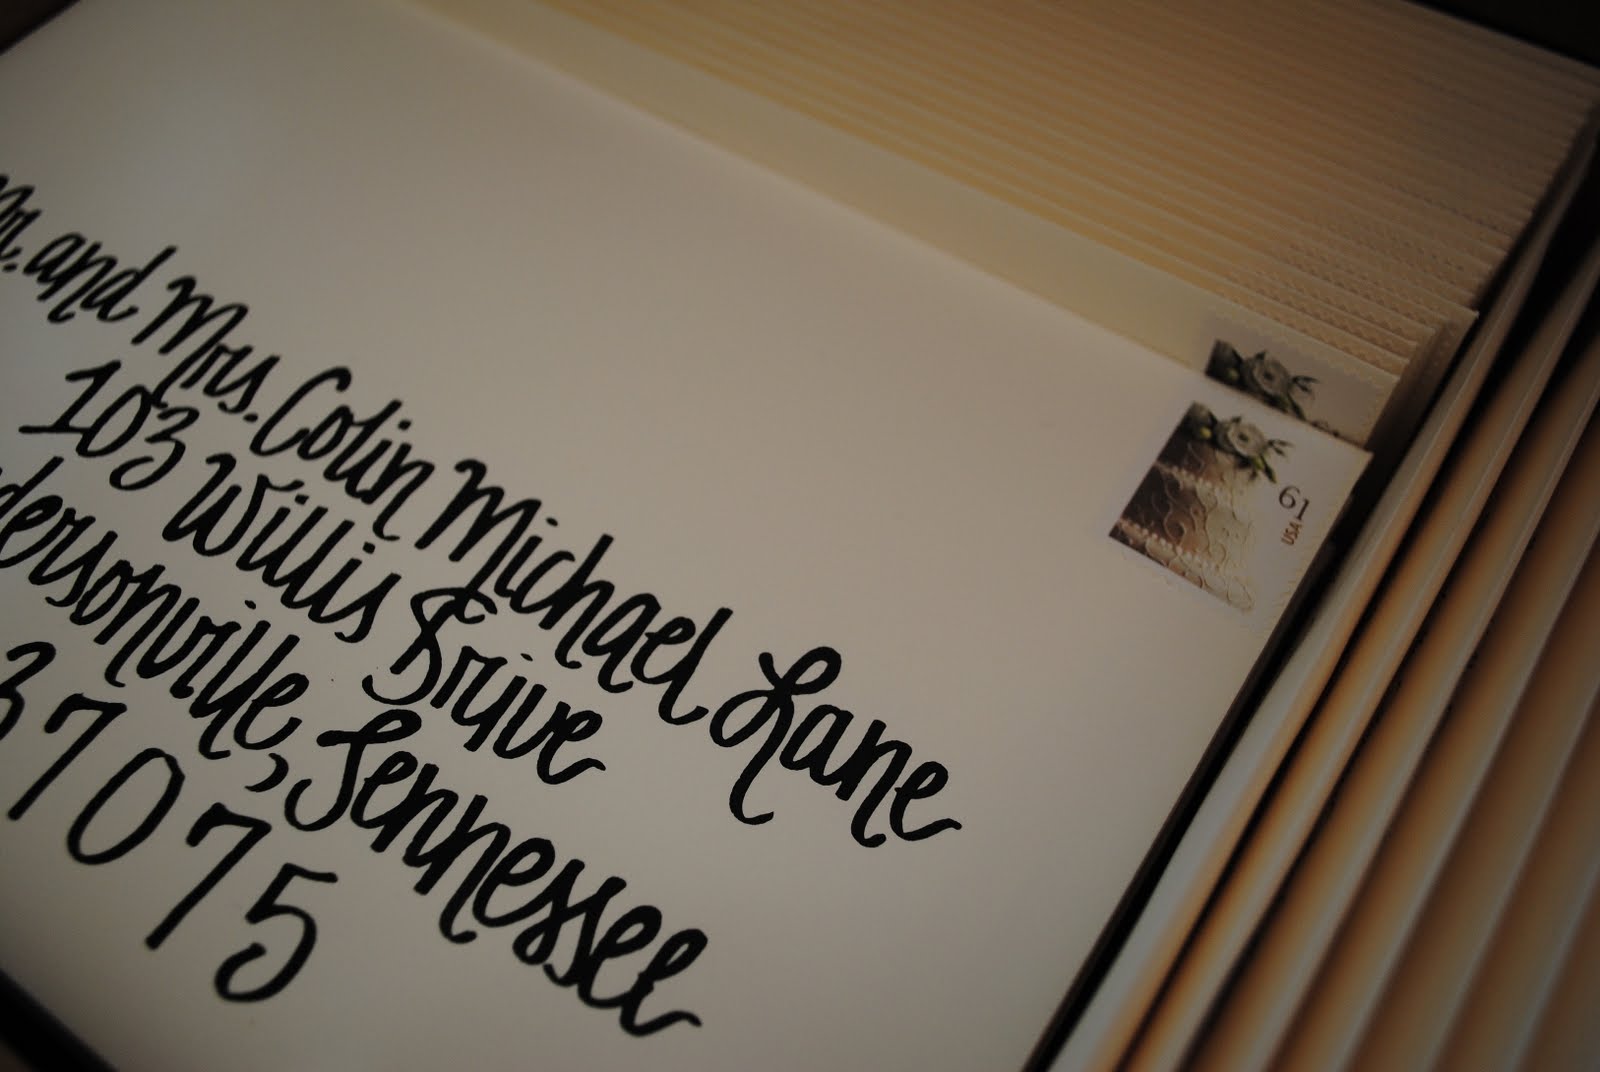 Mr. and Mrs. Colin Michael Lane
103 Willis Drive
dersonville, Tennessee
37075
61
USA